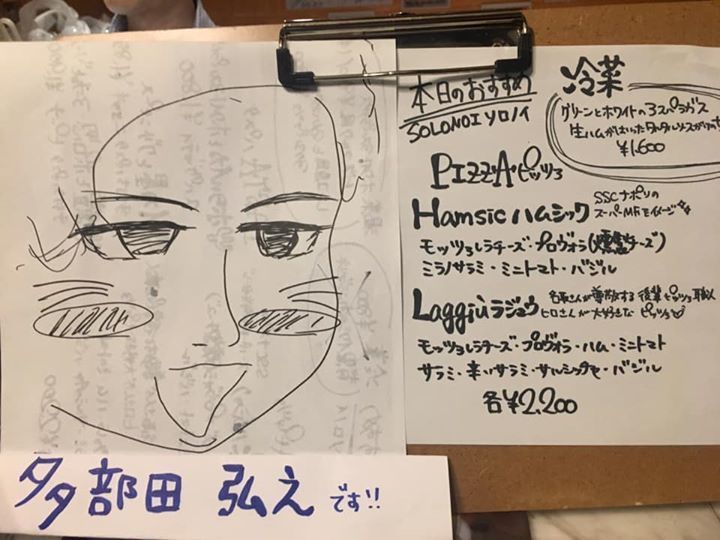 本日のおすすめ
SOLONOI ソロノイ
冷菜
グリーンとホワイトのアスパラガス
生ハムがはいったタルタルソースがけ
¥1,600
PIZZA・ピッツァ
Hamsic ハムシック
SSCナポリの
スーパーMFをイメージ
モッツァレラチーズ・プロヴォラ(燻製チーズ)
ミラノサラミ・ミニトマト・バジル
Laggiù ラジュウ
尊敬する後輩ピッツァ職人
ヒロさんが大好きなピッツァ
モッツァレラチーズ・プロヴォラ・ハム・ミニトマト
サラミ・辛いサラミ・サルシッチャ・バジル
各¥2,200
多部田 弘え です!!